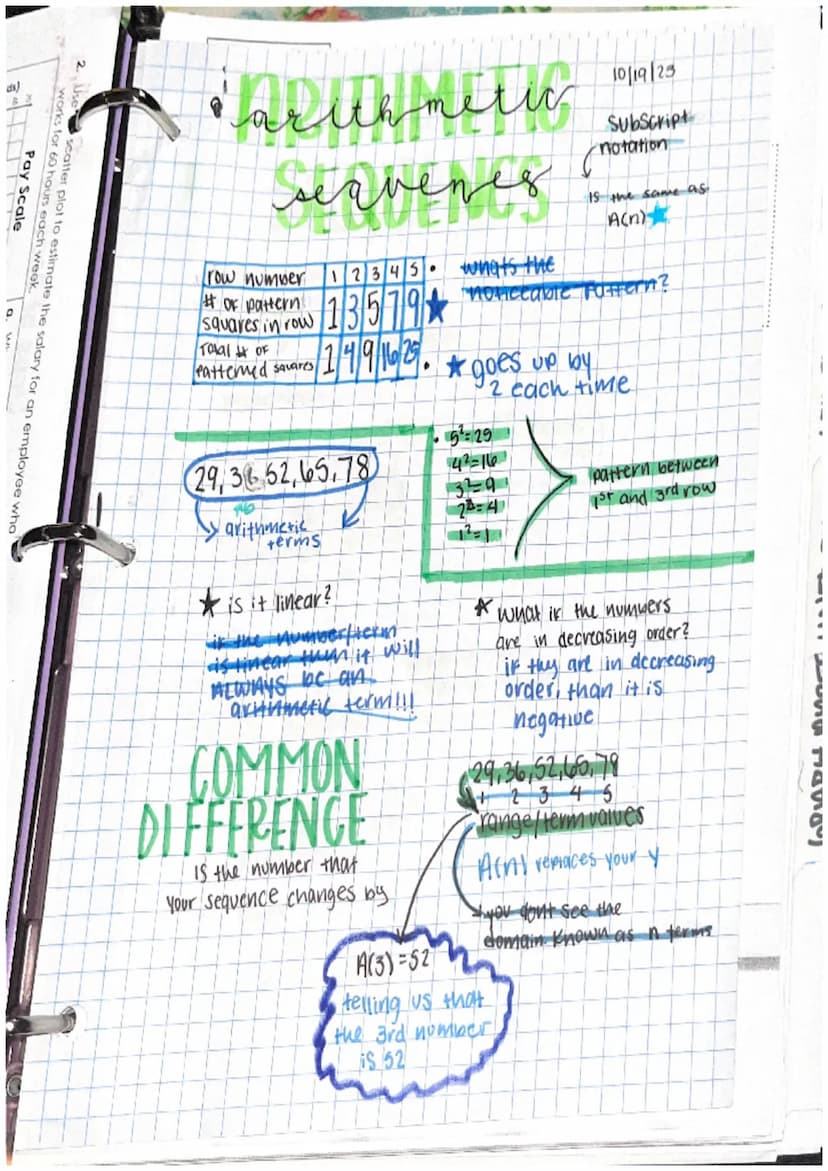 ARITHMETIC
arithmetic
SEQUENCS
sequences
10/19/23
subscript
notation
is the same as
A(n)
row number 1 2 3 4 5
# of pattern
squares in row 1 3 5 7 9
Total # of
patterned squares 1 4 9 16 25
whats the
noticeable pattern?
goes up by
2 each time
5²=25
4²=16
3²=9
2²=4
1²=1
pattern between
1st and 3rd row
29, 36, 52, 65, 78
arithmetic
terms
is it linear?
if the number/term
is linear then it will
ALWAYS be an
arithmetic term!!!
What if the numbers
are in decreasing order?
if they are in decreasing
order, than it is
negative
COMMON
DIFFERENCE
is the number that
your sequence changes by
29, 36, 52, 65, 78
1 2 3 4 5
range/term values
A(n) replaces your y
you dont see the
domain known as n terms
A(3)=52
telling us that
the 3rd number
is 52
2.
scatter plot to estimate the salary for an employee who
works for 60 hours each week.
Pay Scale